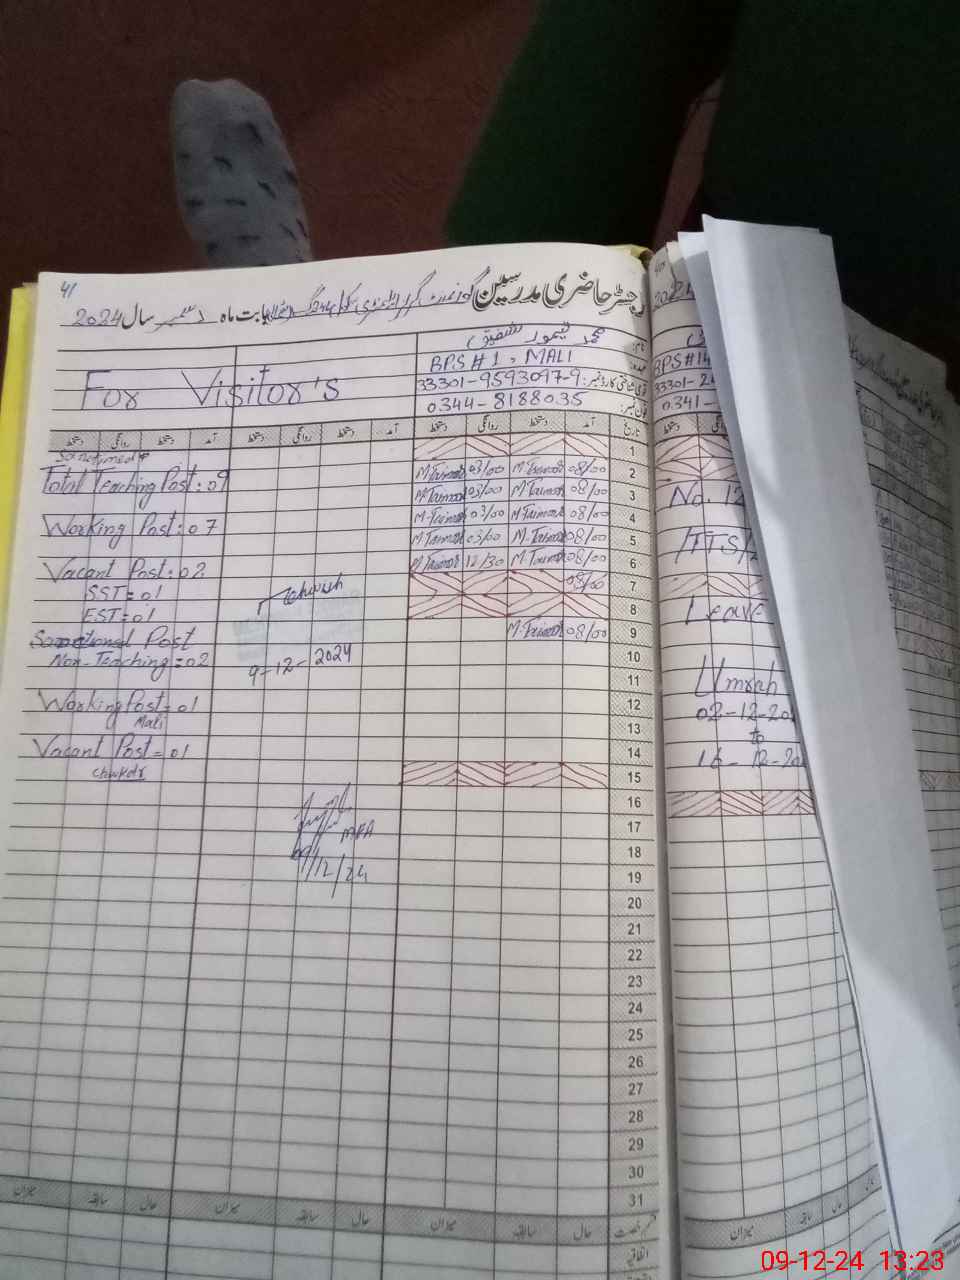 41
رجسٹر حاضری مدرسین گورنمنٹ گرلز ایلیمنٹری سکول
بابت ماہ دسمبر سال 2024
For Visitor's
نام: محمد تیمور شفیق
عہدہ: BPS#1, MALI
قومی شناختی کارڈ نمبر: 33301-9593097-9
فون نمبر: 0344-8188035
تاریخ آمد دستخط روانگی دستخط آمد دستخط روانگی دستخط آمد دستخط روانگی دستخط
1
2 08/00 M.Taimoor 03/00 M.Taimoor
3 08/00 M.Taimoor 03/00 M.Taimoor
4 08/00 M.Taimoor 03/00 M.Taimoor
5 08/00 M.Taimoor 03/00 M.Taimoor
6 08/00 M.Taimoor 12/30 M.Taimoor
7 08/00
8
9 08/00 M.Taimoor
10
11
12
13
14
15
16
17
18
19
20
21
22
23
24
25
26
27
28
29
30
31
Sanctioned
Total Teaching Post: 09
Working Post: 07
Vacant Post: 02
SST=01
EST=01
Sanctioned Post
Non-Teaching=02
Working Post=01
Mali
Vacant Post=01
Chwkdr
9-12-2024
MEA
09/12/24
قسم رخصت حال سابقہ میزان حال سابقہ میزان حال سابقہ میزان
اتفاقیہ
2024
BPS#14
33301-2
0341-
No. 12
/TTS/
Leave
Umrah
02-12-20
to
16-12-20
میزان سابقہ حال
09-12-24 13:23